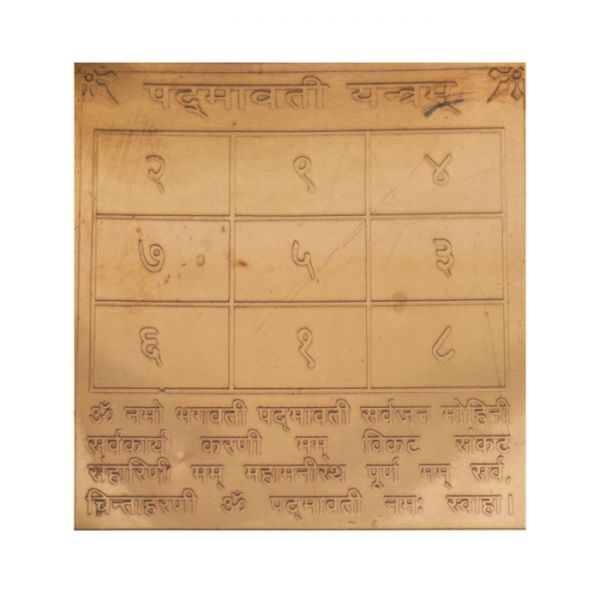 पद्मावती यन्त्रम्
२ ९ ४
७ ५ ३
६ १ ८
ॐ नमो भगवती पद्मावती सर्वजन मोहिनी
सर्वकार्य करणी मम् विकट संकट
संहारिणी मम् महामनोरथ पूर्ण मम् सर्व,
चिन्ताहरणी ॐ पद्मावती नमः स्वाहा।